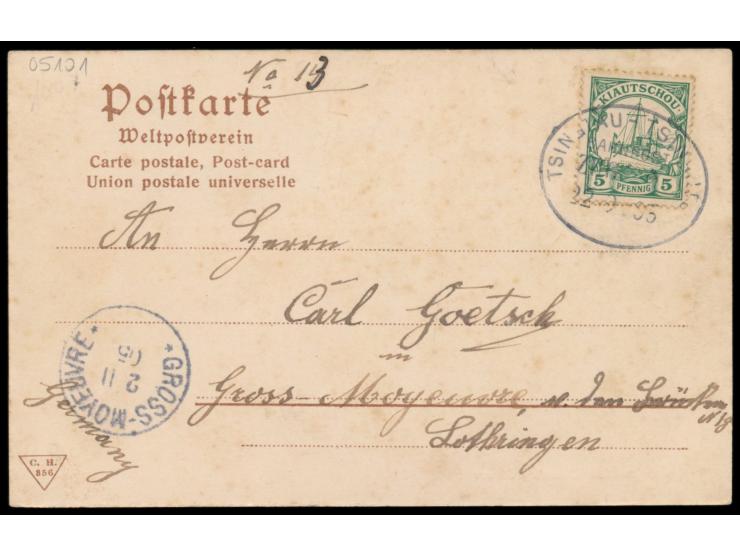 05101
No 13
Postkarte
Weltpostverein
Carte postale, Post-card
Union postale universelle
KIAUTSCHOU
5 PFENNIG 5
TSINGTAU-TSI
BAHNPOST
ZUG
An Herrn
Carl Goetsch
in
Gross-Moyeuvre v. den Brücken
N 18
Lothringen
Germany
* GROSS-MOYEUVRE *
2 11
05
C. H.
856